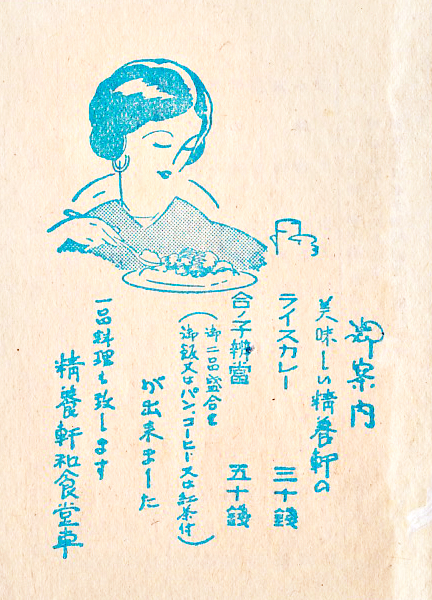 御案内
美味しい精養軒の
ライスカレー 三十銭
合ノ子辨當 五十銭
(御二品盛合せ
御飯又はパン、コーヒー又は紅茶付)
が出来ました
一品料理も致します
精養軒和食堂車